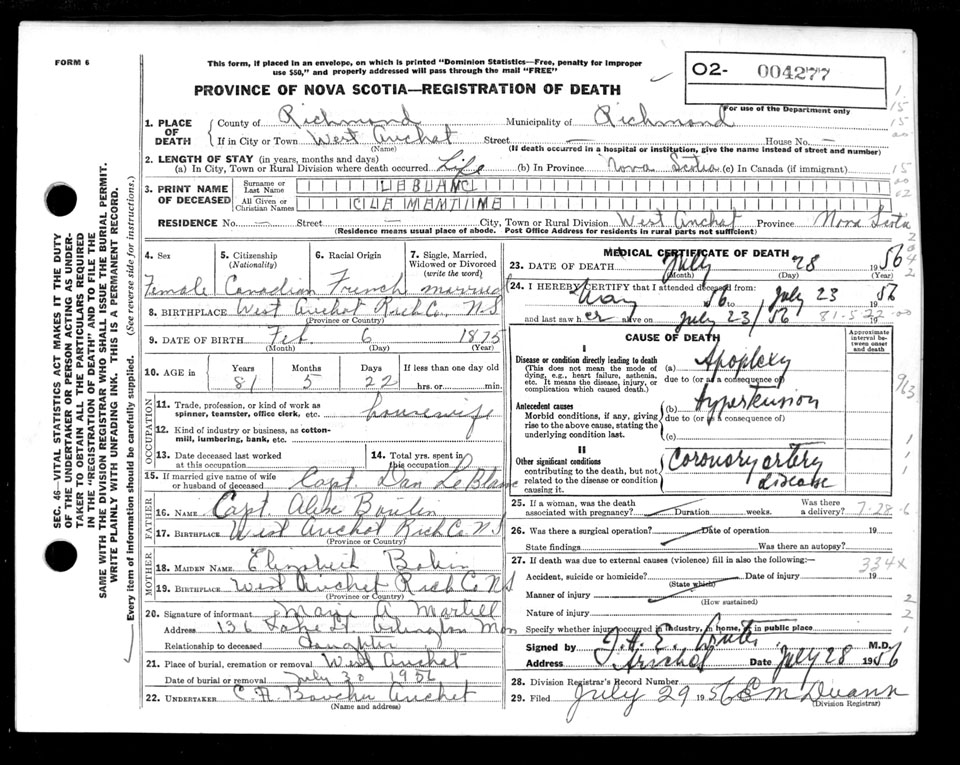 FORM 6
This form, if placed in an envelope, on which is printed "Dominion Statistics—Free, penalty for improper
use $50," and properly addressed will pass through the mail "FREE"
O2- 004277
PROVINCE OF NOVA SCOTIA—REGISTRATION OF DEATH
For use of the Department only
1. PLACE OF DEATH
County of Richmond Municipality of Richmond
If in City or Town West Arichat Street — House No. —
(Name) (If death occurred in a hospital or institution, give the name instead of street and number)
2. LENGTH OF STAY (in years, months and days)
(a) In City, Town or Rural Division where death occurred Life (b) In Province Nova Scotia (c) In Canada (if immigrant)
3. PRINT NAME OF DECEASED
Surname or Last Name LEBLANC
All Given or Christian Names
RESIDENCE No. — Street — City, Town or Rural Division West Arichat Province Nova Scotia
(Residence means usual place of abode. Post Office Address for residents in rural parts not sufficient)
SEC. 46—VITAL STATISTICS ACT MAKES IT THE DUTY
OF THE UNDERTAKER OR PERSON ACTING AS UNDER-
TAKER TO OBTAIN ALL THE PARTICULARS REQUIRED
IN THE "REGISTRATION OF DEATH" AND TO FILE THE
SAME WITH THE DIVISION REGISTRAR WHO SHALL ISSUE THE BURIAL PERMIT.
WRITE PLAINLY WITH UNFADING INK. THIS IS A PERMANENT RECORD.
Every item of information should be carefully supplied. (See reverse side for instructions.)
4. Sex
Female
5. Citizenship (Nationality)
Canadian
6. Racial Origin
French
7. Single, Married, Widowed or Divorced (write the word)
married
8. BIRTHPLACE West Arichat Rich Co., N.S
(Province or Country)
9. DATE OF BIRTH Feb. 6 1875
(Month) (Day) (Year)
10. AGE in Years 81 Months 5 Days 22 If less than one day old
hrs. or min.
OCCUPATION
11. Trade, profession, or kind of work as
spinner, teamster, office clerk, etc. housewife
12. Kind of industry or business, as cotton-
mill, lumbering, bank, etc.
13. Date deceased last worked
at this occupation
14. Total yrs. spent in
this occupation
15. If married give name of wife
or husband of deceased Capt. Dan LeBlanc
FATHER
16. Name Capt. Boulin
17. Birthplace West Arichat Rich Co. N.S
(Province or Country)
MOTHER
18. MAIDEN NAME Elizabeth
19. BIRTHPLACE West Arichat Rich Co NS
(Province or Country)
20. Signature of informant A Martell
Address 136 St. Arlington
Relationship to deceased Daughter
21. Place of burial, cremation or removal West Arichat
Date of burial or removal July 30 1956
22. UNDERTAKER Boucher Arichat
(Name and address)
MEDICAL CERTIFICATE OF DEATH
23. DATE OF DEATH July 28 1956
(Month) (Day) (Year)
24. I HEREBY CERTIFY that I attended deceased from:
May 56 to July 23 1956
and last saw her alive on July 23/56 81-5-22-00
CAUSE OF DEATH
Approximate interval between onset and death
I
Disease or condition directly leading to death
(This does not mean the mode of
dying, e.g., heart failure, asthenia,
etc. It means the disease, injury, or
complication which caused death.)
(a) Apoplexy
due to (or as a consequence of)
Antecedent causes
Morbid conditions, if any, giving
rise to the above cause, stating the
underlying condition last.
(b) Hypertension
due to (or as a consequence of)
(c)
II
Other significant conditions
contributing to the death, but not
related to the disease or condition
causing it.
Coronary artery
disease
25. If a woman, was the death
associated with pregnancy? Duration weeks. Was there
a delivery? 7-28-6
26. Was there a surgical operation? Date of operation 19
State findings Was there an autopsy?
27. If death was due to external causes (violence) fill in also the following:— 334X
Accident, suicide or homicide? Date of injury 19
(State which)
Manner of injury
(How sustained)
Nature of injury
Specify whether injury occurred in industry, in home, or in public place
Signed by M.D.
Address Arichat Date July 28 1956
28. Division Registrar's Record Number
29. Filed July 29 1956 E M
(Division Registrar)